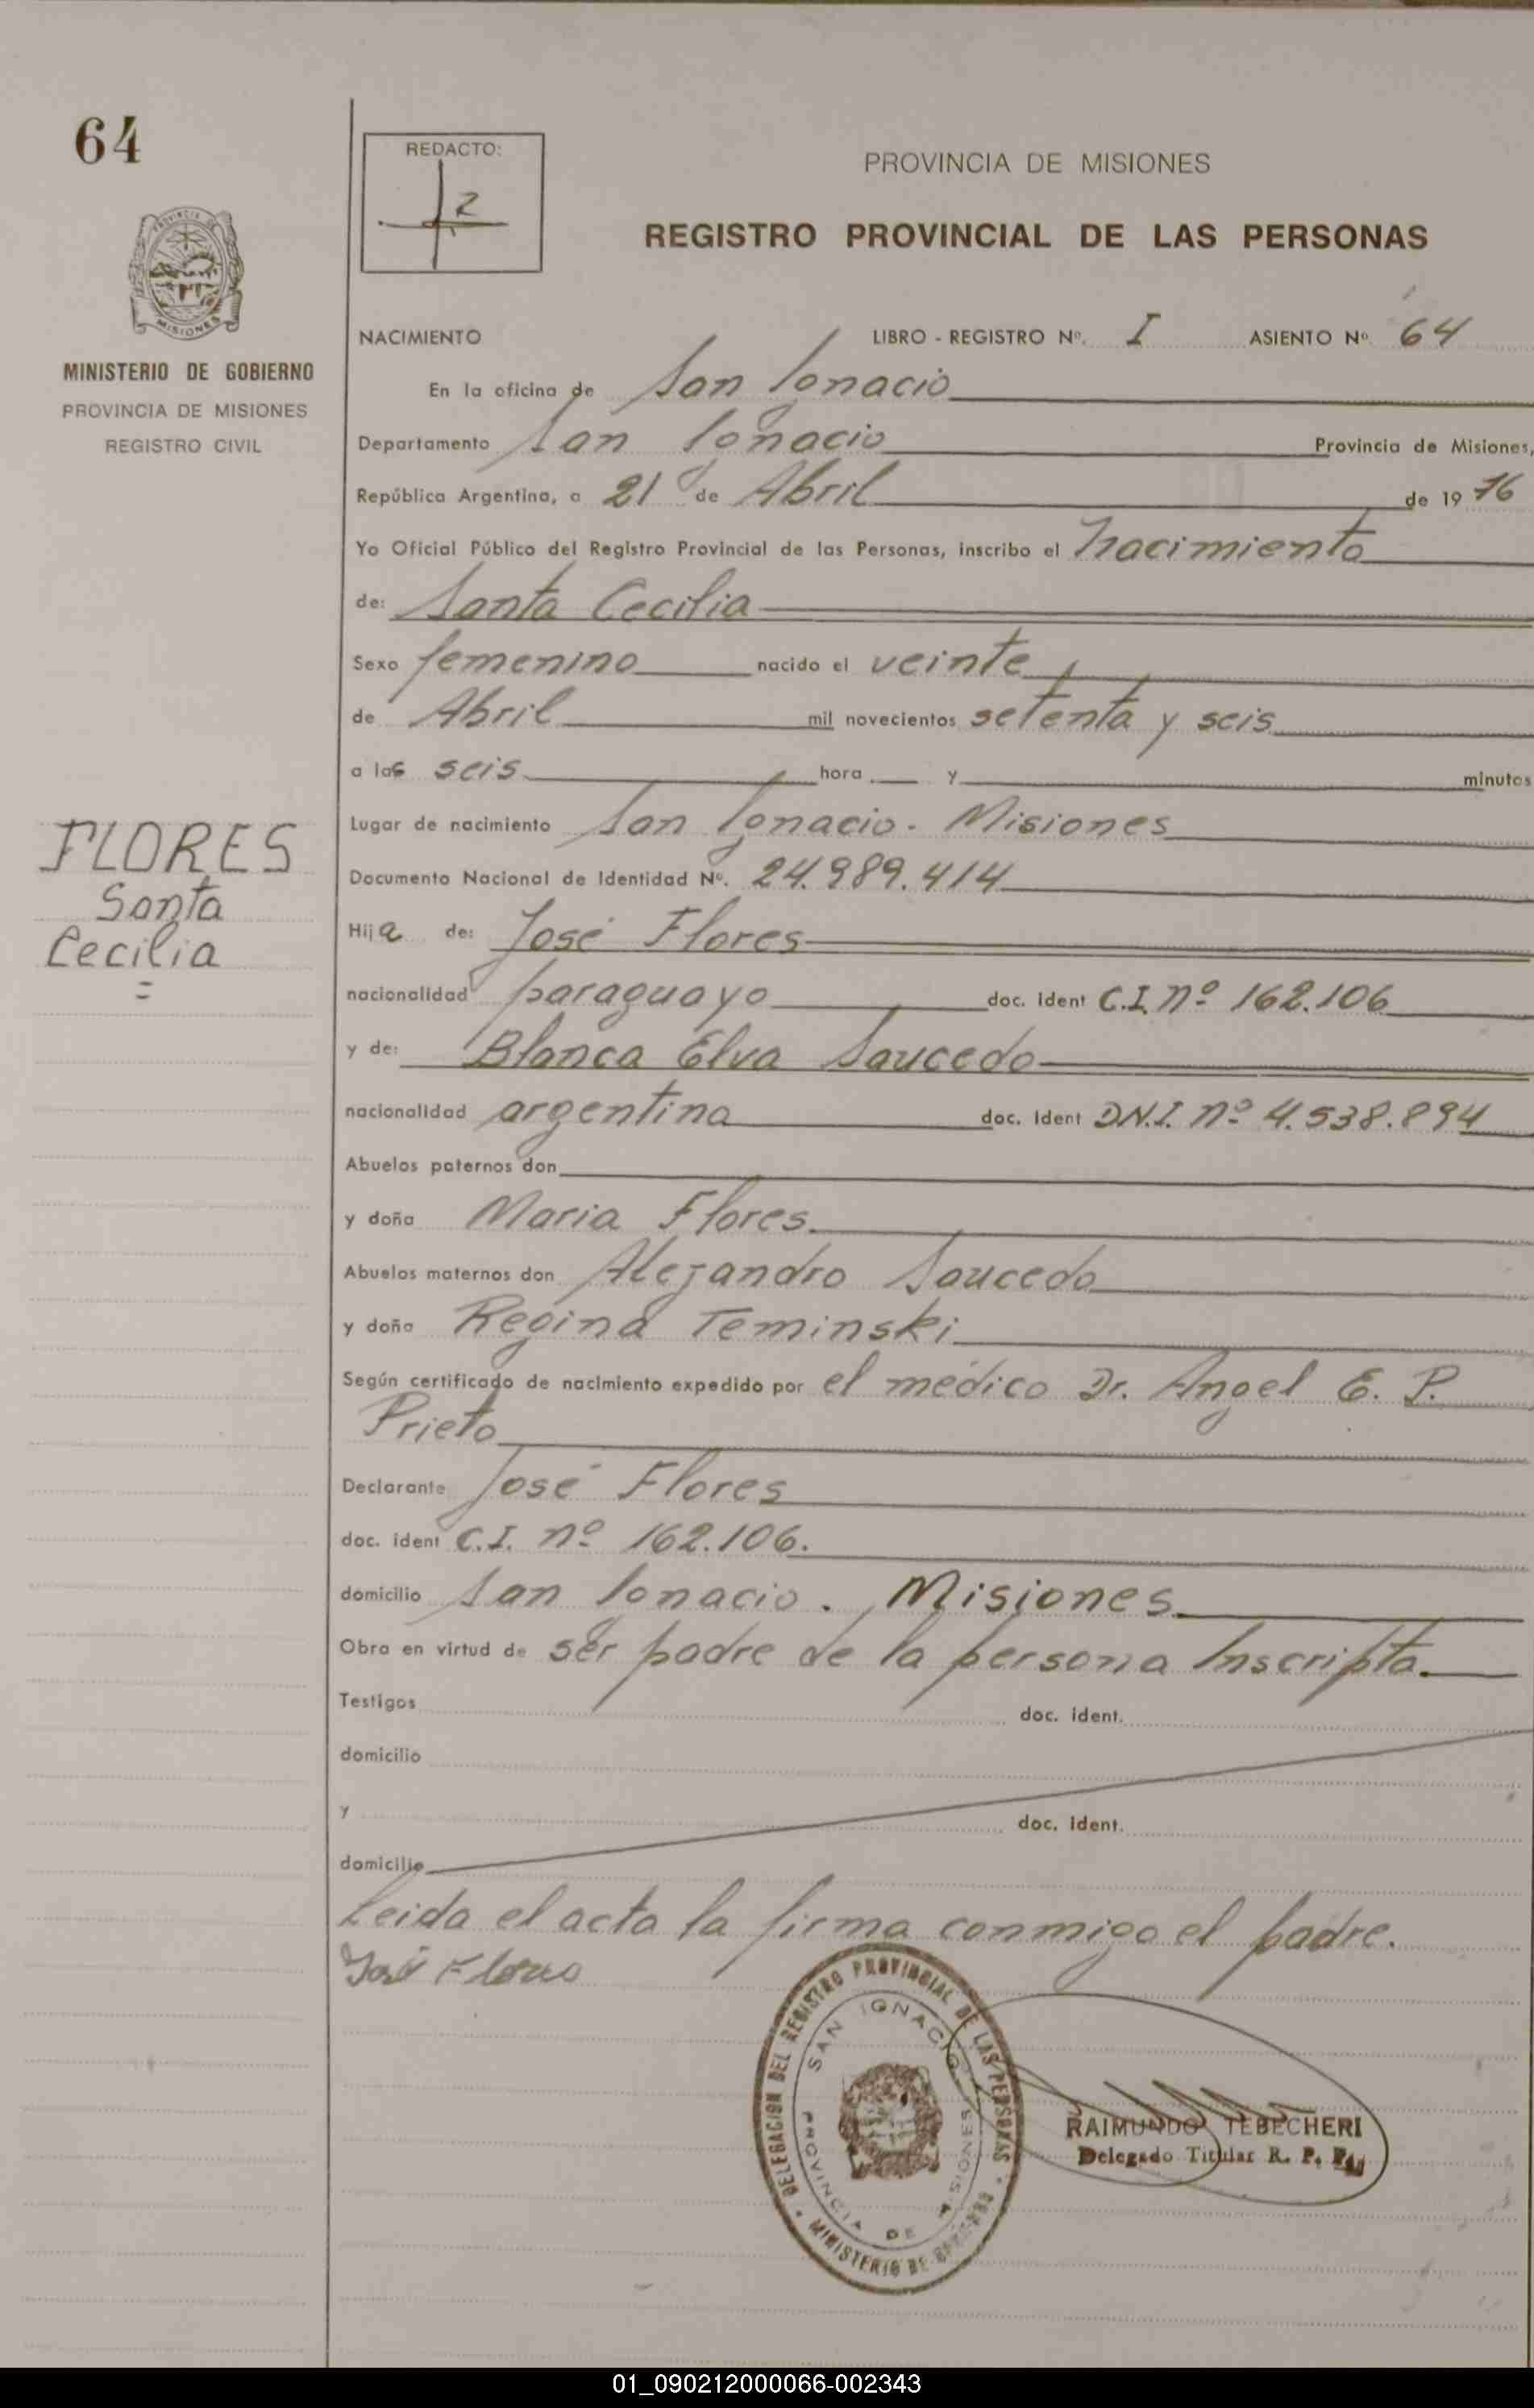 64
REDACTO:
2
PROVINCIA DE MISIONES
REGISTRO PROVINCIAL DE LAS PERSONAS
MISIONES
MINISTERIO DE GOBIERNO
PROVINCIA DE MISIONES
REGISTRO CIVIL
NACIMIENTO LIBRO - REGISTRO Nº. I ASIENTO Nº 64
En la oficina de San Ignacio
Departamento San Ignacio Provincia de Misiones,
República Argentina, a 21 de Abril de 19 76
Yo Oficial Público del Registro Provincial de las Personas, inscribo el nacimiento
de: Santa Cecilia
Sexo femenino nacido el veinte
de Abril mil novecientos setenta y seis
a las seis hora y minutos
Lugar de nacimiento San Ignacio. Misiones
FLORES
Santa
Cecilia
Documento Nacional de Identidad Nº. 24.989.414
Hija de: José Flores
nacionalidad paraguayo doc. ident C.I. nº 162.106
y de: Blanca Elva Saucedo
nacionalidad argentina doc. ident D.N.I. nº 4.538.894
Abuelos paternos don
y doña Maria Flores.
Abuelos maternos don Alejandro Saucedo
y doña Regina Teminski
Según certificado de nacimiento expedido por el médico Dr. Angel E. P.
Prieto
Declarante José Flores
doc. ident C.I. nº 162.106.
domicilio San Ignacio. Misiones
Obra en virtud de ser padre de la persona Inscripta.
Testigos doc. ident.
domicilio
y doc. ident.
domicilio
Leida el acta la firma conmigo el padre.
José Flores
DELEGACION DEL REGISTRO PROVINCIAL DE LAS PERSONAS
SAN IGNACIO
PROVINCIA DE MISIONES
MINISTERIO DE GOBIERNO
RAIMUNDO TEBECHERI
Delegado Titular R. P. P.
01_090212000066-002343